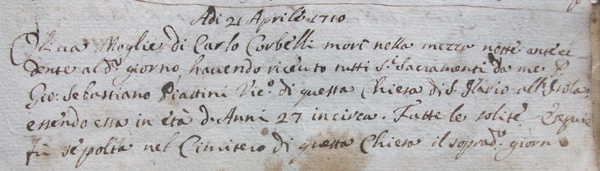 Adi 21 Aprile 1710
Moglie di Carlo Corbelli morì nella mezza notte antece
dente al dº giorno, havendo riceuto tutti S.ti Sacramenti da me P.
Gio: Sebastiano Piattini Vicº di questa Chiesa di S. Ilario all'Isola
essendo essa in età d'Anni 27 incirca. Fatte le solite Esequie
fù sepolta nel Cimitero di questa Chiesa il sopradº giorno